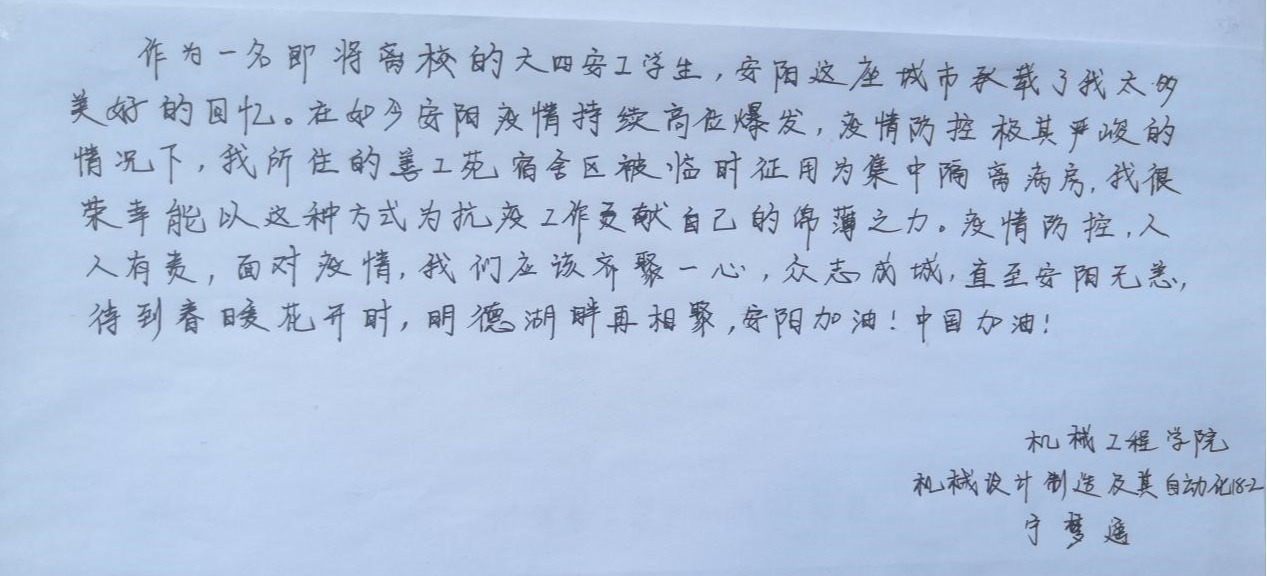 作为一名即将离校的大四安工学生，安阳这座城市承载了我太多
美好的回忆。在如今安阳疫情持续高位爆发，疫情防控极其严峻的
情况下，我所住的善工苑宿舍区被临时征用为集中隔离病房，我很
荣幸能以这种方式为抗疫工作贡献自己的绵薄之力。疫情防控，人
人有责，面对疫情，我们应该齐聚一心，众志成城，直至安阳无恙，
待到春暖花开时，明德湖畔再相聚，安阳加油！中国加油！
机械工程学院
机械设计制造及其自动化18-2
宁梦遥